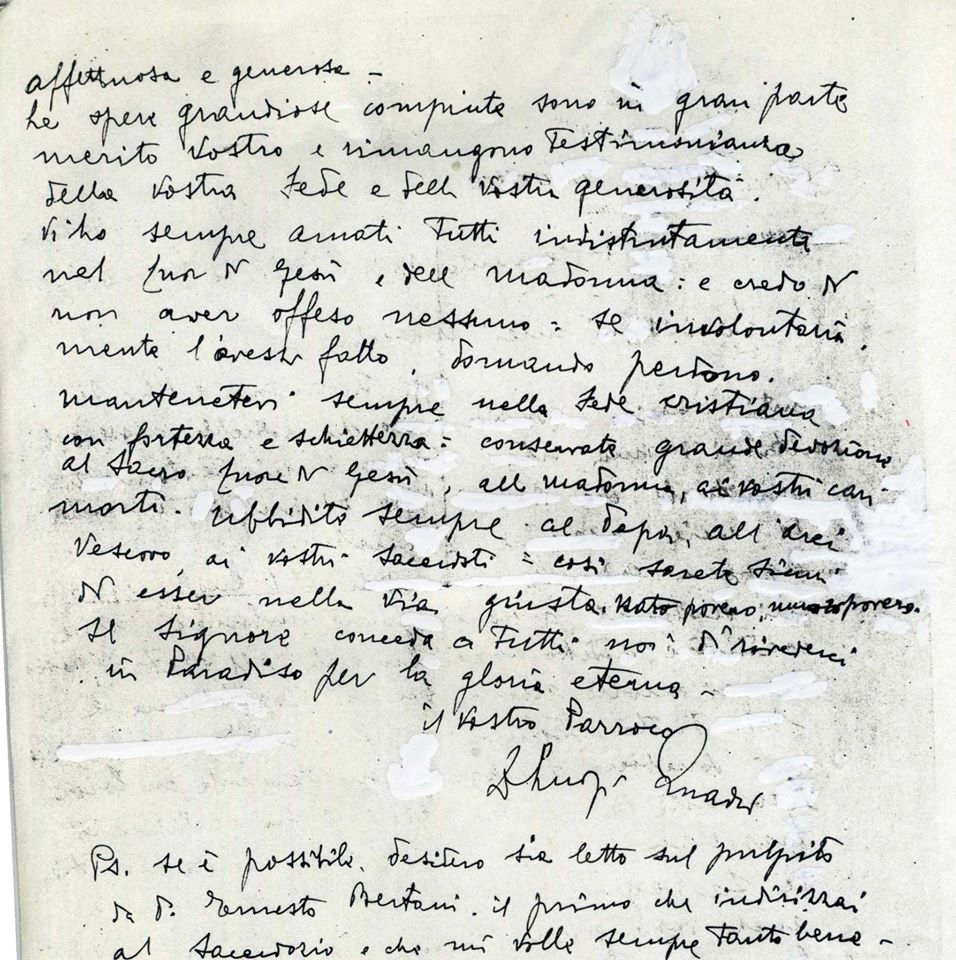 affettuosa e generosa -
Le opere grandiose compiute sono in gran parte
merito vostro e rimangono Testimonianza
della vostra Fede e della vostra generosità.
Vi ho sempre amati Tutti indistintamente
nel Cuor di Gesù e della Madonna: e credo di
non aver offeso nessuno: se involontaria
mente l'avessi fatto, domando perdono.
Mantenetevi sempre nella Fede cristiana
con fortezza e schiettezza: conservate grande devozione
al Sacro Cuore di Gesù, alla Madonna, ai vostri cari
morti. Ubbidite sempre al Papa, all'Arci
vescovo, ai vostri sacerdoti = così sarete sicuri
di esser nella via giusta. Nato povero, muoio povero.
Il Signore conceda a Tutti noi di rivederci
in Paradiso per la gloria eterna -
il vostro Parroco
D Luigi
Ps. se è possibile, desidero sia letto sul pulpito
da D. Ernesto Bertani. il primo che indirizzai
al sacerdozio e che mi volle sempre Tanto bene -